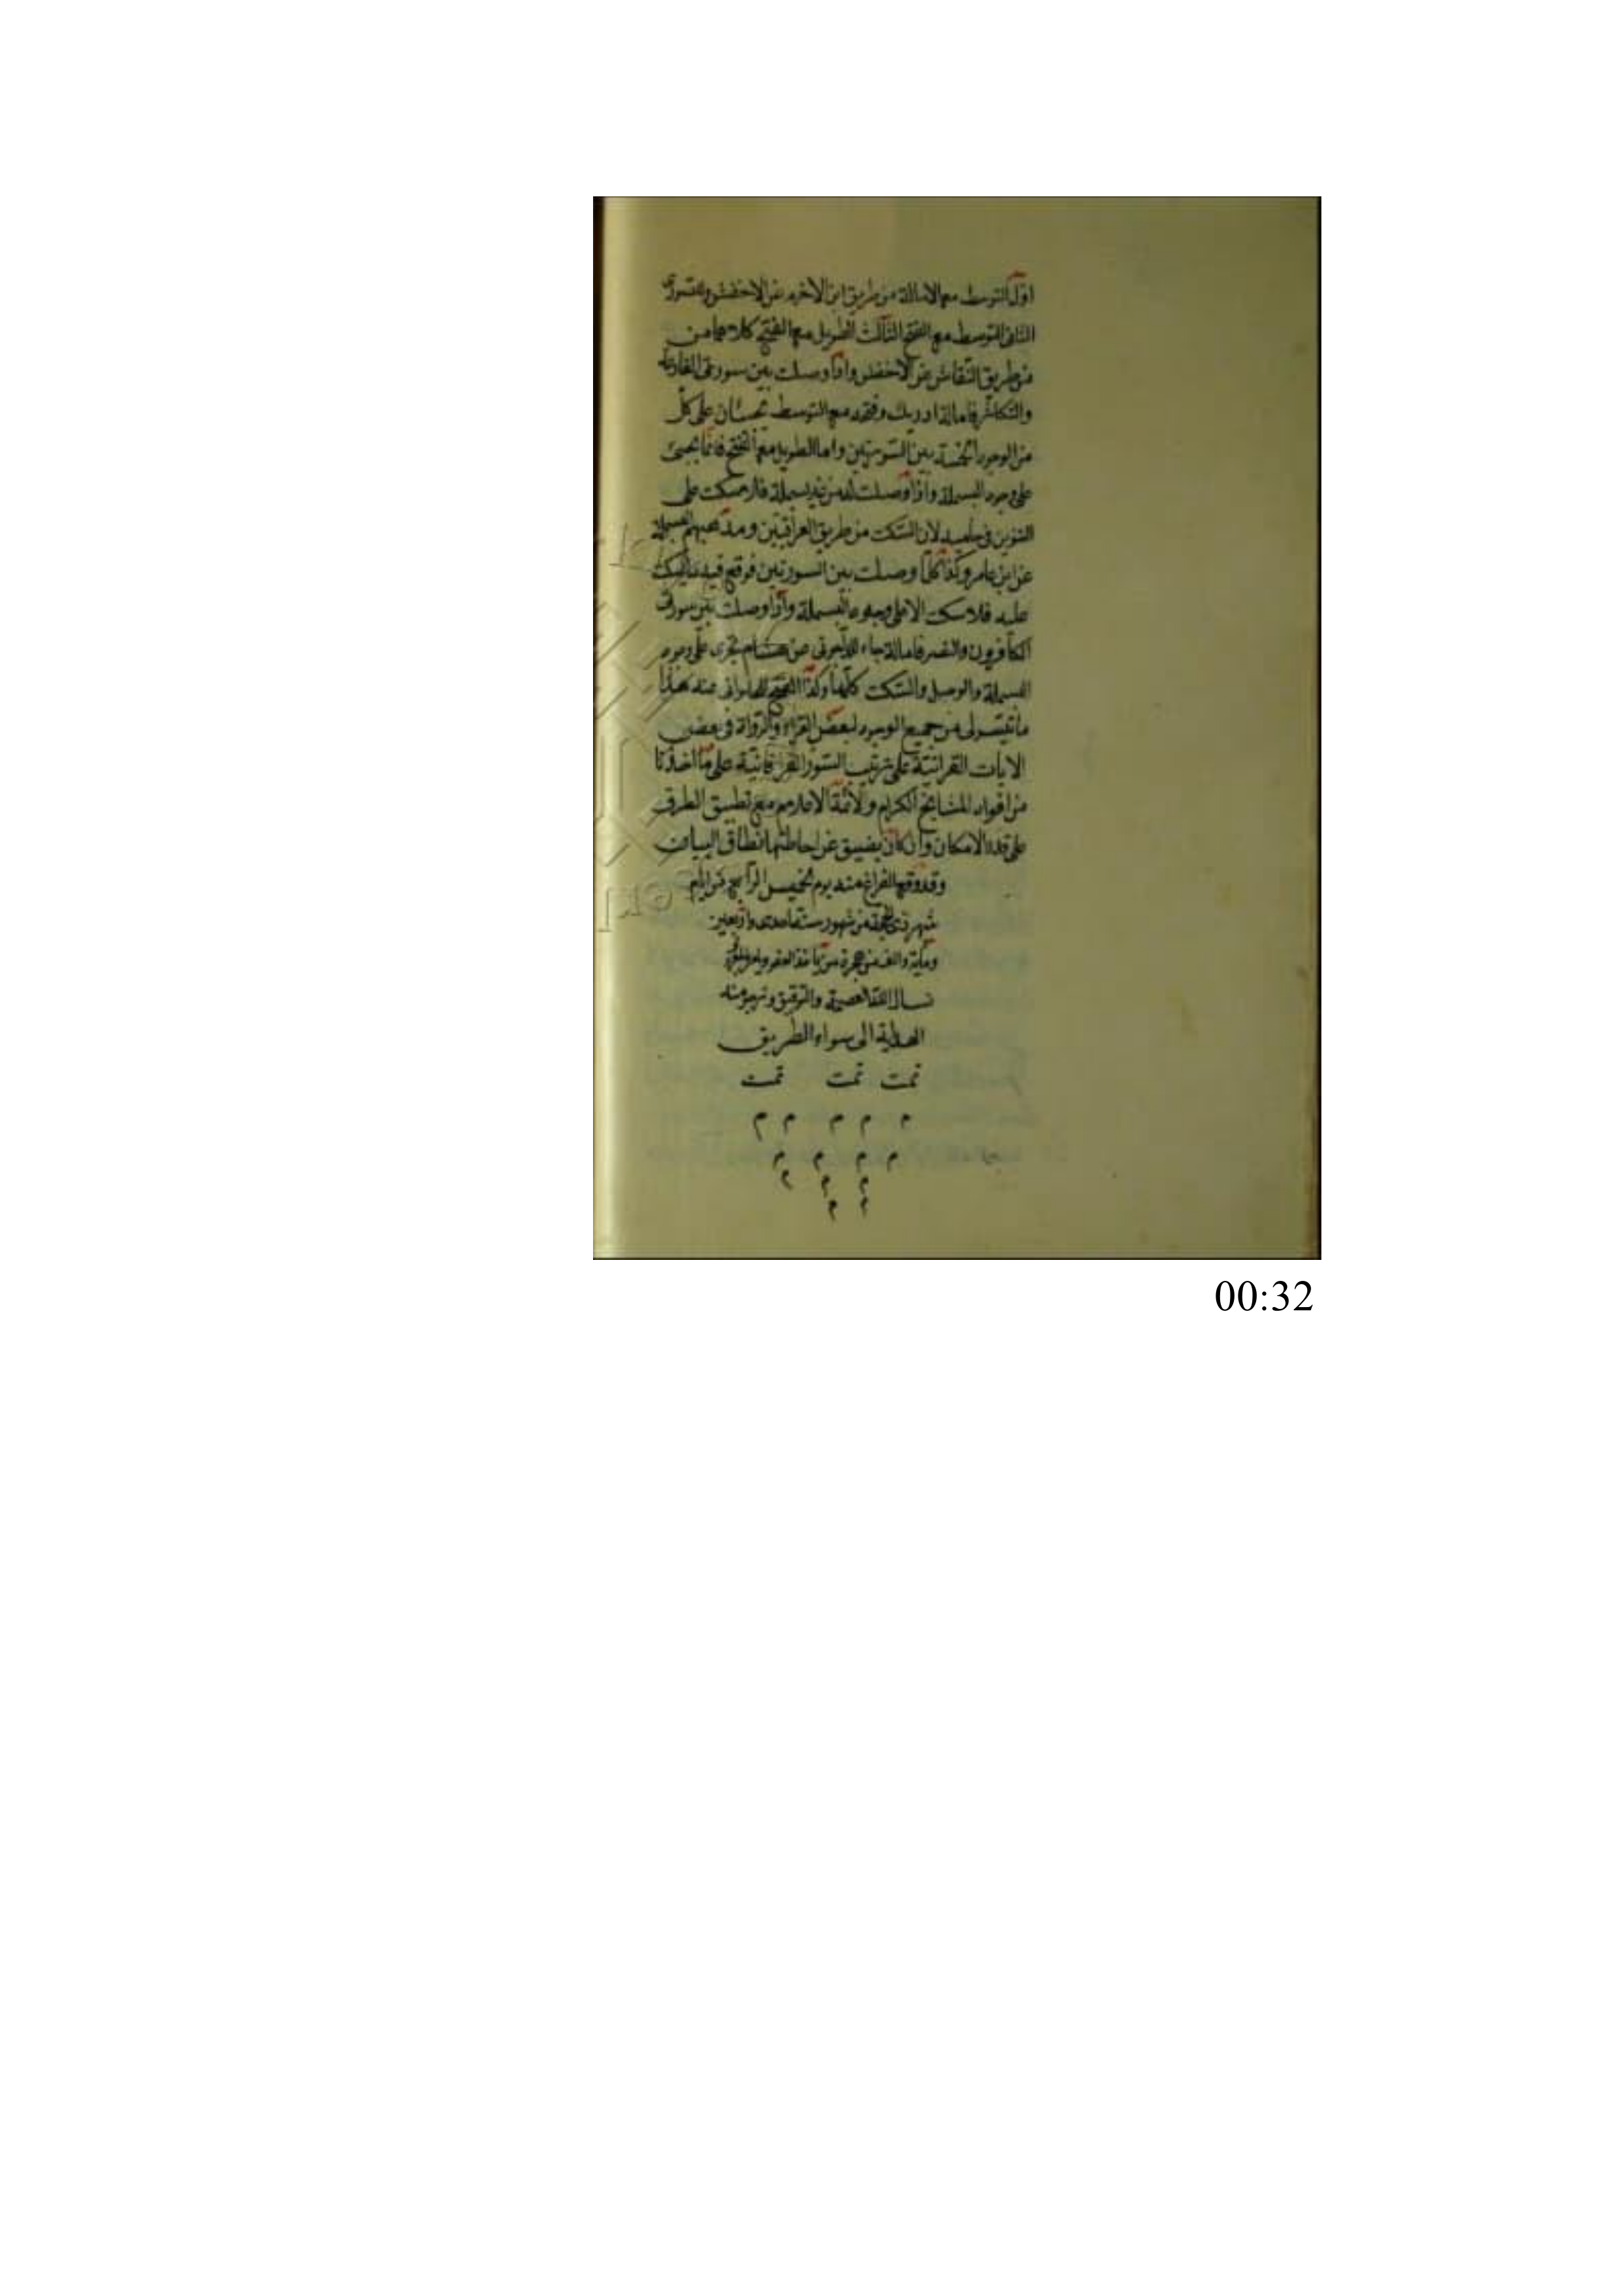 اول التوسط مع الامالة من طريق ابن الاخرم عن الاخفش والصوري
الثانى التوسط مع الفتح الثالث الطويل مع الفتح كلاهما من
من طريق النقاش عن الاخفش واذا وصلت بين سورتى القارعة
والتكاثر فامالة ادريك وفتحه مع التوسط تجيئان على كل
من الوجوه الخمسة بين السورتين واما الطويل مع الفتح فانما يجئ
على وجوه البسملة واذا وصلت له من غير بسملة فلا سكت على
التنوين فى حامية لان السكت من طريق العراقيين ومذهبهم البسملة
عن ابن عامر وكذا كلما وصلت بين السورتين فوقع فيه ما يسكت
عليه فلا سكت الا على وجوه البسملة واذا وصلت بين سورتى
الكافرون والنصر فامالة جاء للداجونى عن هشام تجرى على وجوه
البسملة والوصل والسكت كلها وكذا الفتح للحلوانى عنه هذا
ما تيسر لى من جميع الوجوه لبعض القراء والرواة فى بعض
الايات القرانية على ترتيب السور الفرقانية على ما اخذنا
من افواه المشايخ الكرام والائمة الاعلام مع تطبيق الطرق
على قدر الامكان وان كان يضيق عن احاطتها نطاق البيان
وقد وقع الفراغ منه يوم الخميس الرابع من ايام
شهر ذى الحجة من شهور سنة احدى واربعين
ومأية والف من هجرة من
نسال الله العصمة والتوفيق ونرجو منه
الهداية الى سواء الطريق
تمت تمت تمت
م م م م م
م م م م
م م م
م م
00:32